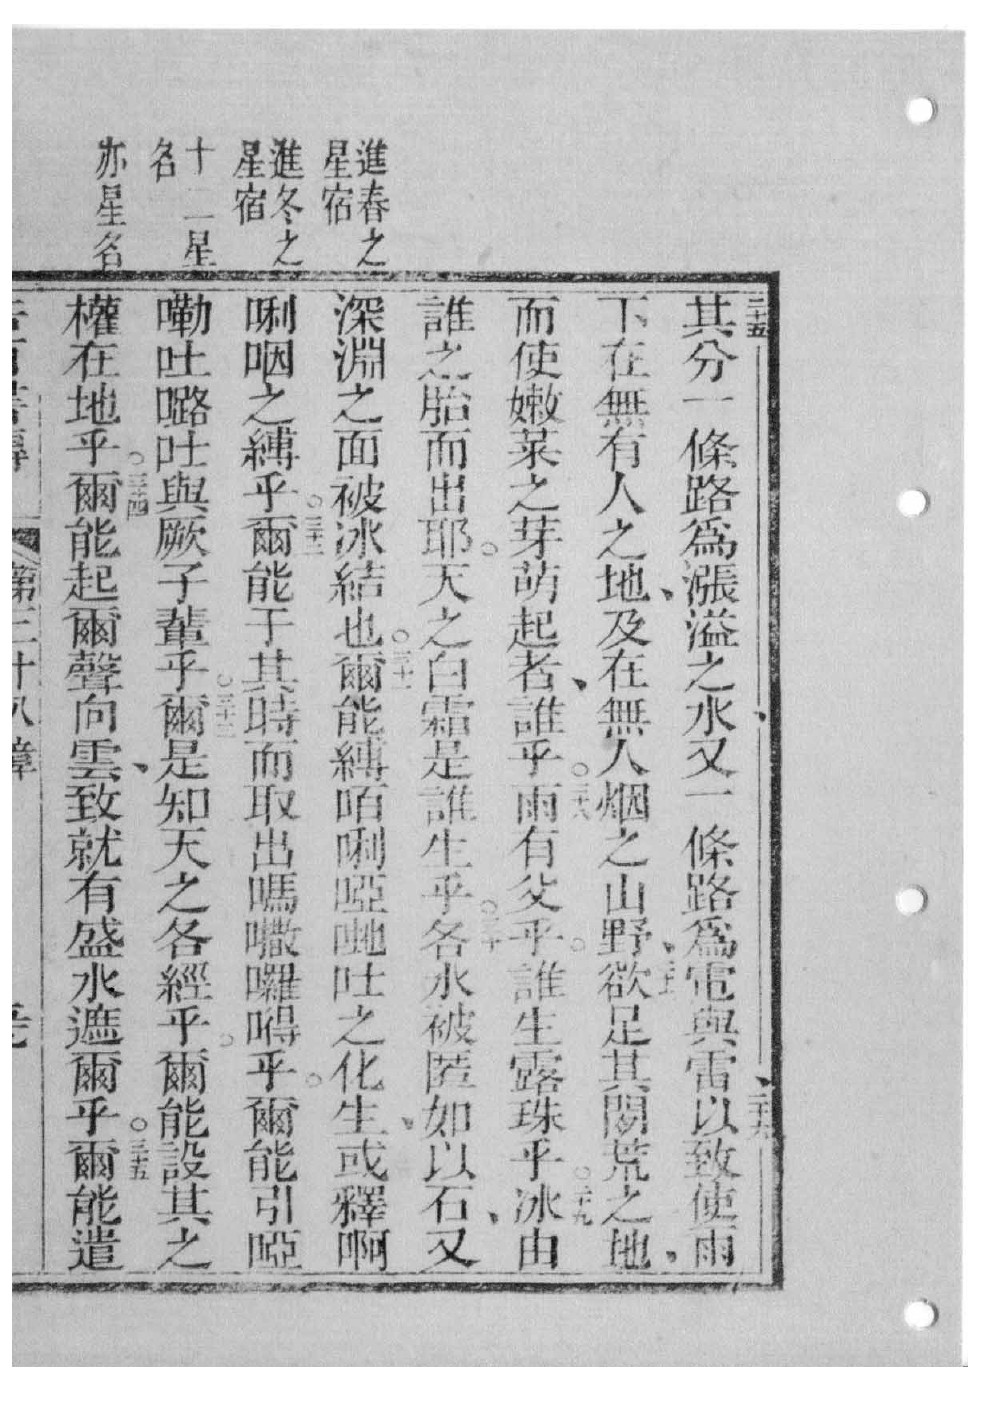 進春之
星宿
進冬之
星宿
十二星
名
亦星名
二十五其分一條路爲漲溢之水、又一條路爲電與雷、二十六以致使雨
下在無有人之地、及在無人烟之山野、欲足其閒荒之地、
而使嫩菜之芽萌起者、誰乎。二十八雨有父乎。誰生露珠乎。二十九冰由
誰之胎而出耶。天之白霜是誰生乎。三十各水被匿如以石、又
深淵之面被冰結也。三十一爾能縛咟唎啞吔吐之化生、或釋啊
唎咽之縛乎。三十二爾能于其時而取出嗎囉嘚乎。爾能引啞
嘞吐𡀔吐與厥子輩乎。三十三爾是知天之各經乎。爾能設其之
權在地乎。三十四爾能起爾聲向雲、致就有盛水遮爾乎。三十五爾能遣
第三十八章